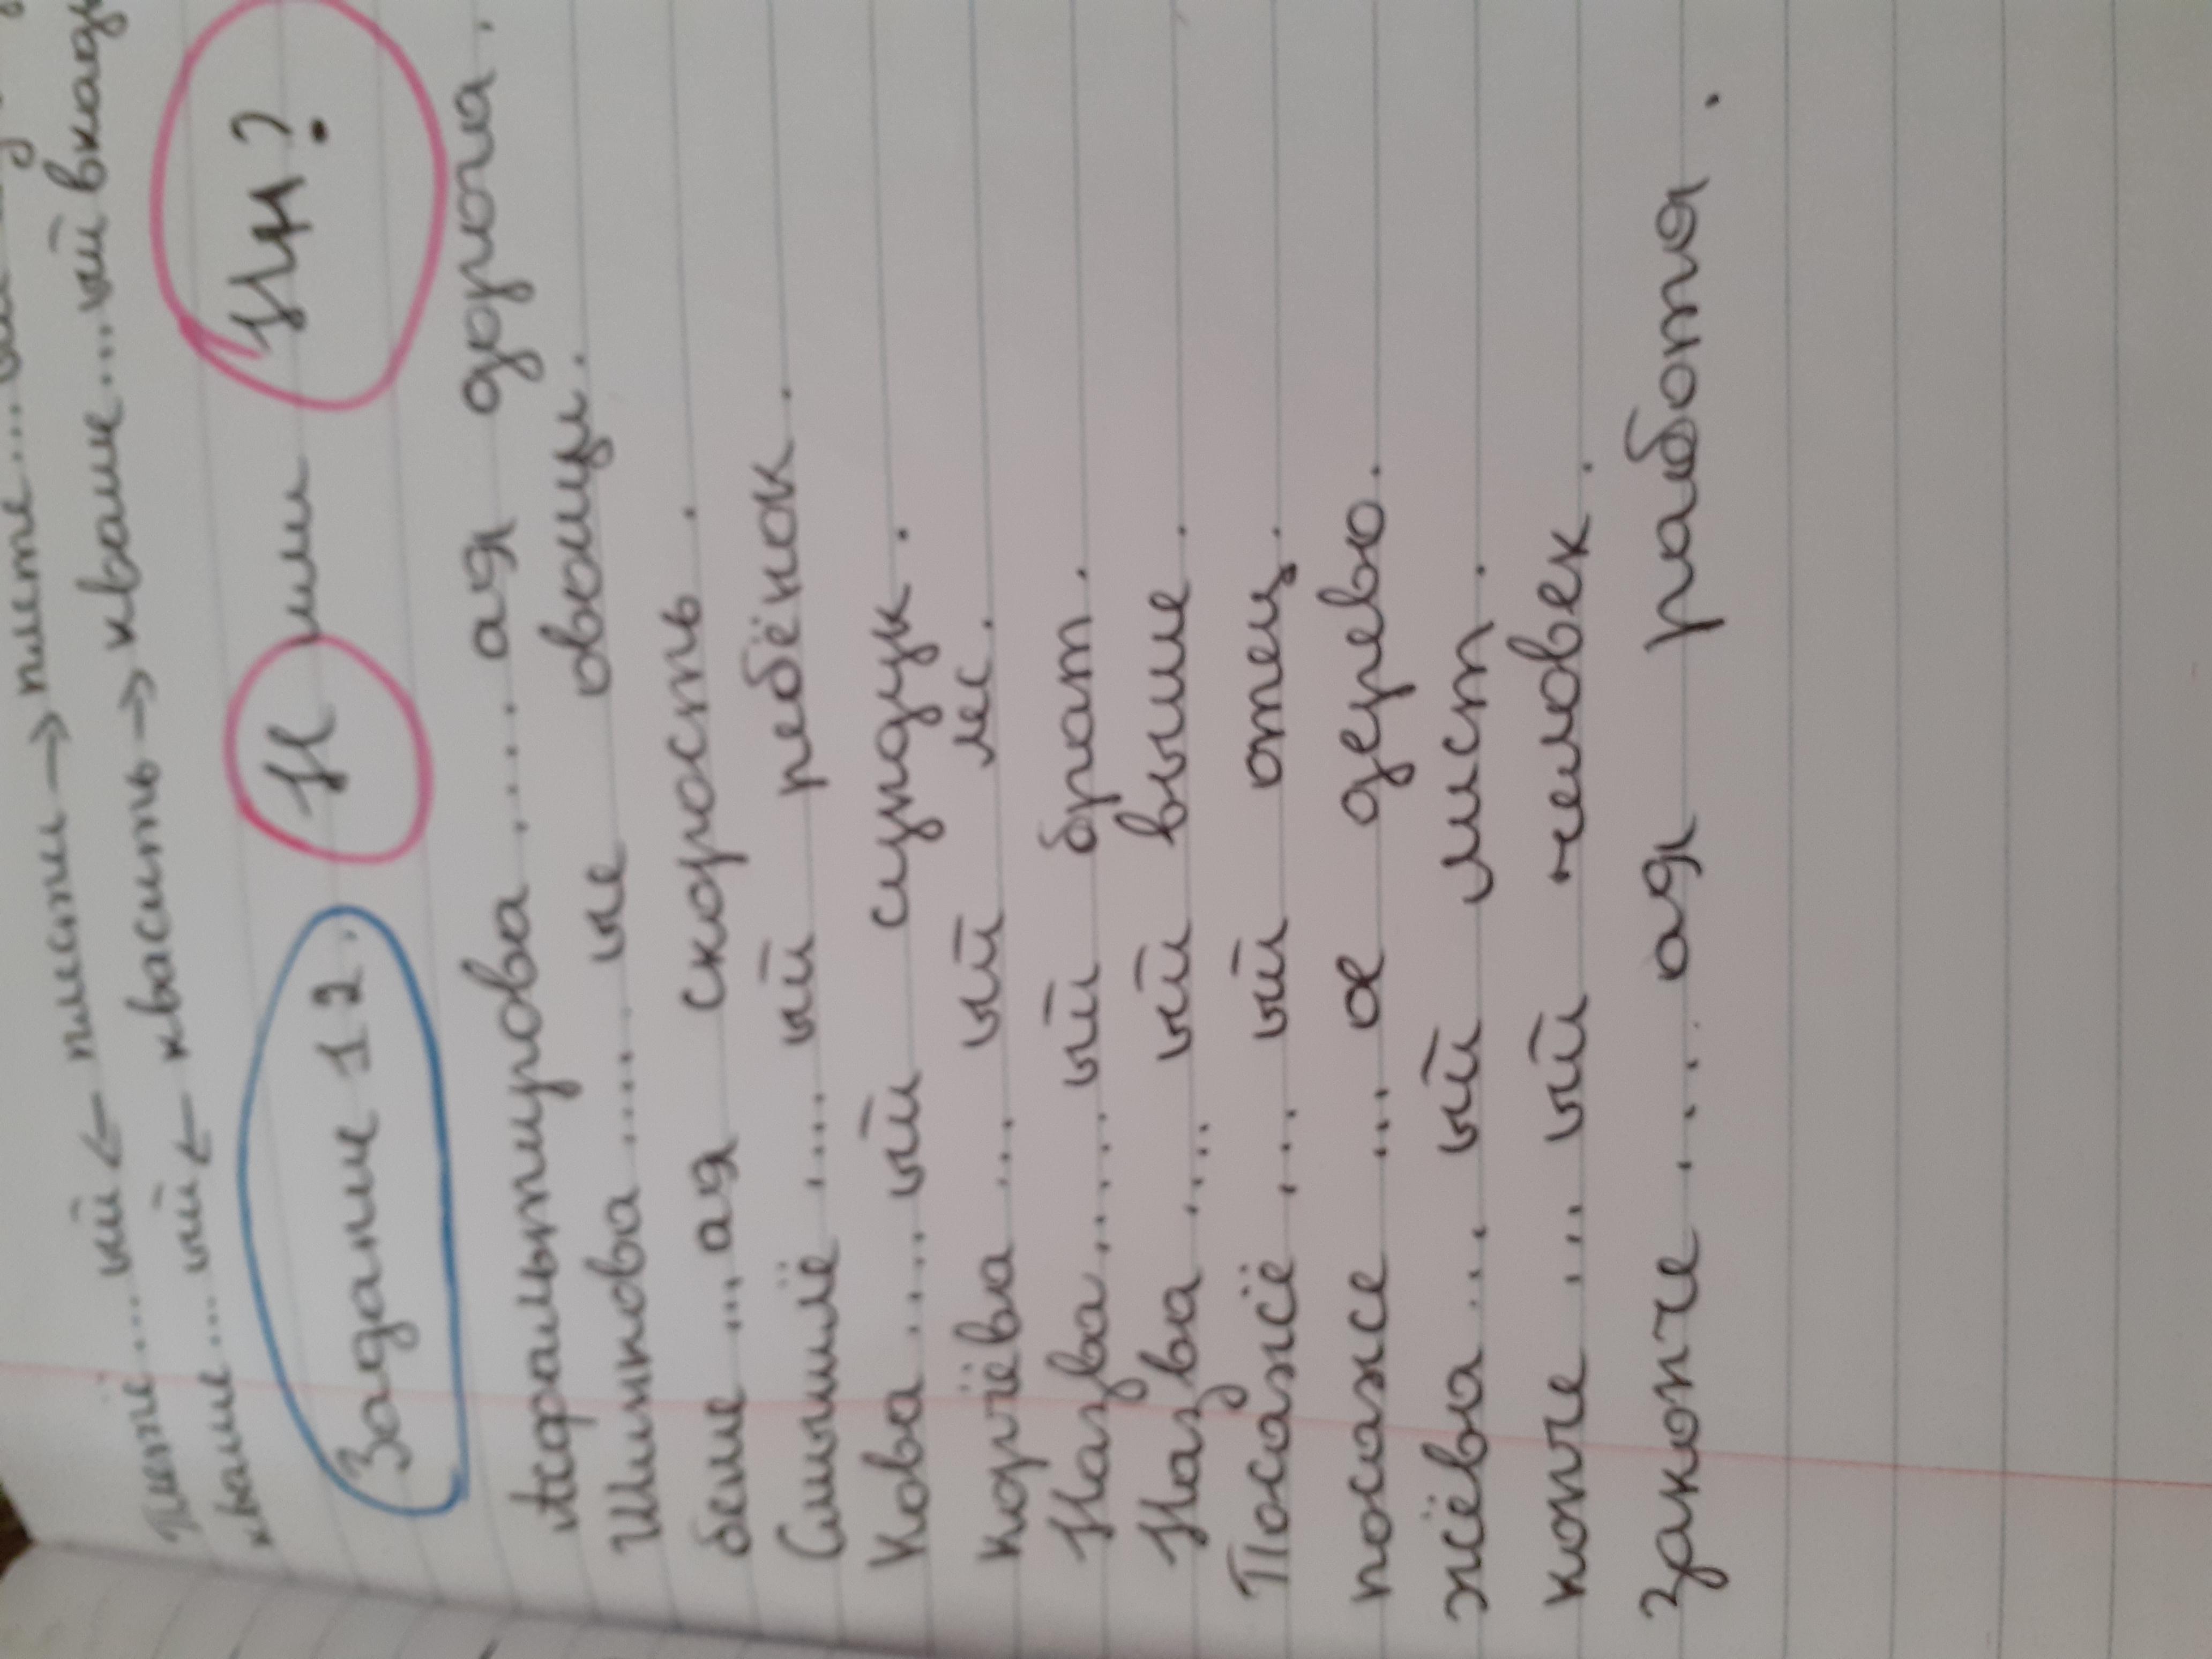 плете....ый ← плести → плете....
кваше....ый ← квасить → кваше....ый вкладыш
Задание 12. Н или НН?
Асфальтирова.....ая дорога.
Шинкова.....ые овощи.
беше....ая скорость.
Смышлё....ый ребёнок.
Кова....ый сундук.
корчёва....ый лес.
Назва.....ый брат.
Назва....ый выше.
Посажё....ый отец.
посаже...ое дерево.
жёва...ый лист.
конче...ый человек.
законче....ая работа.